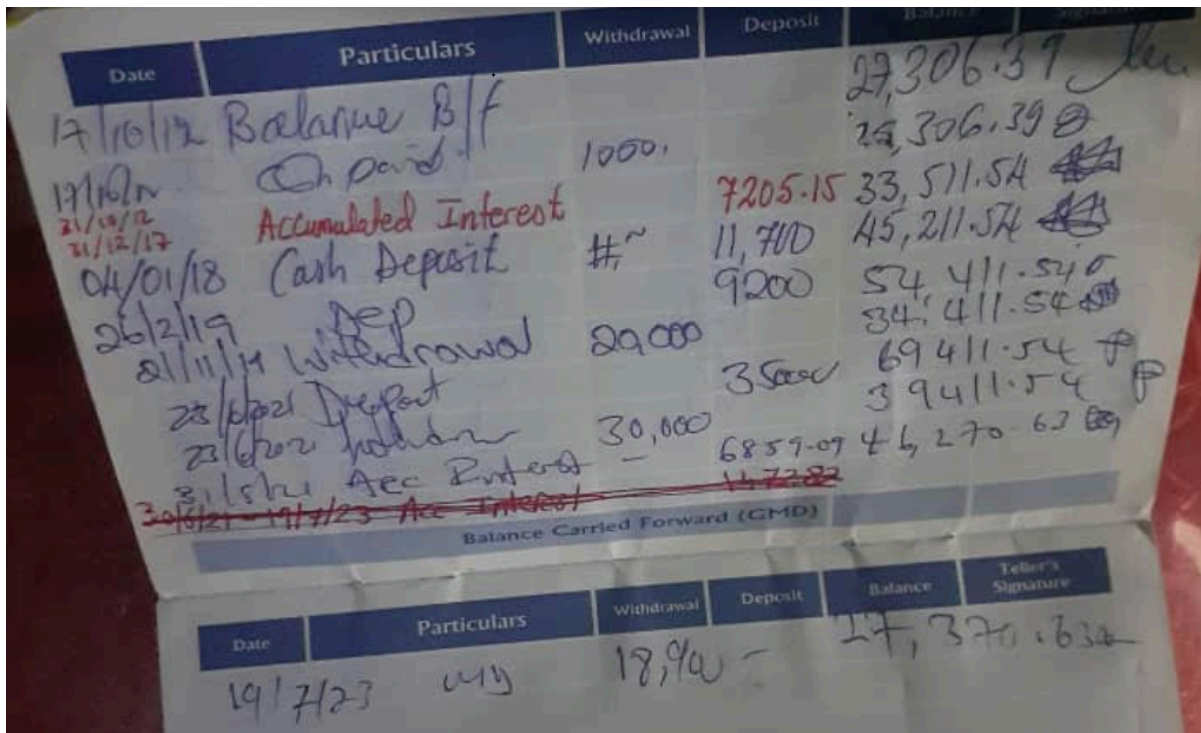 Date Particulars Withdrawal Deposit Balance
17/10/12 Balance B/f 27,306.39
17/10/12 Ch paid 1000. 26,306.39
31/10/12
31/12/17 Accumulated Interest 7205.15 33,511.54
04/01/18 Cash Deposit 11,700 45,211.54
26/2/19 Dep 9200 54,411.54
21/11/19 Withdrawal 20,000 34,411.54
23/6/2021 Deposit 35000 69411.54
23/6/2021 30,000 39411.54
31/5/21 Acc Interest - 6859.09 46,270.63
30/6/21 - 19/7/23 Acc Interest 1472.82
Balance Carried Forward (GMD)
Date Particulars Withdrawal Deposit Balance Teller's Signature
19/7/23 18,900 - 27,370.63